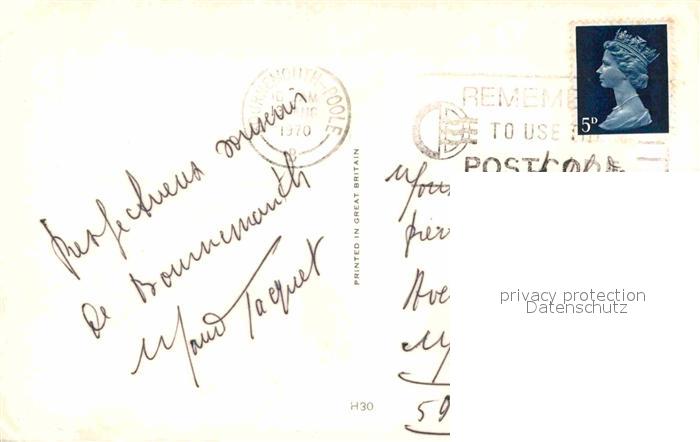 BOURNEMOUTH-POOLE
1970
REMEM
TO USE
POSTCODE
5D
Affectueux souvenir
de Bournemouth
Maud Jacquet
PRINTED IN GREAT BRITAIN
H30
Ave
59
privacy protection
Datenschutz